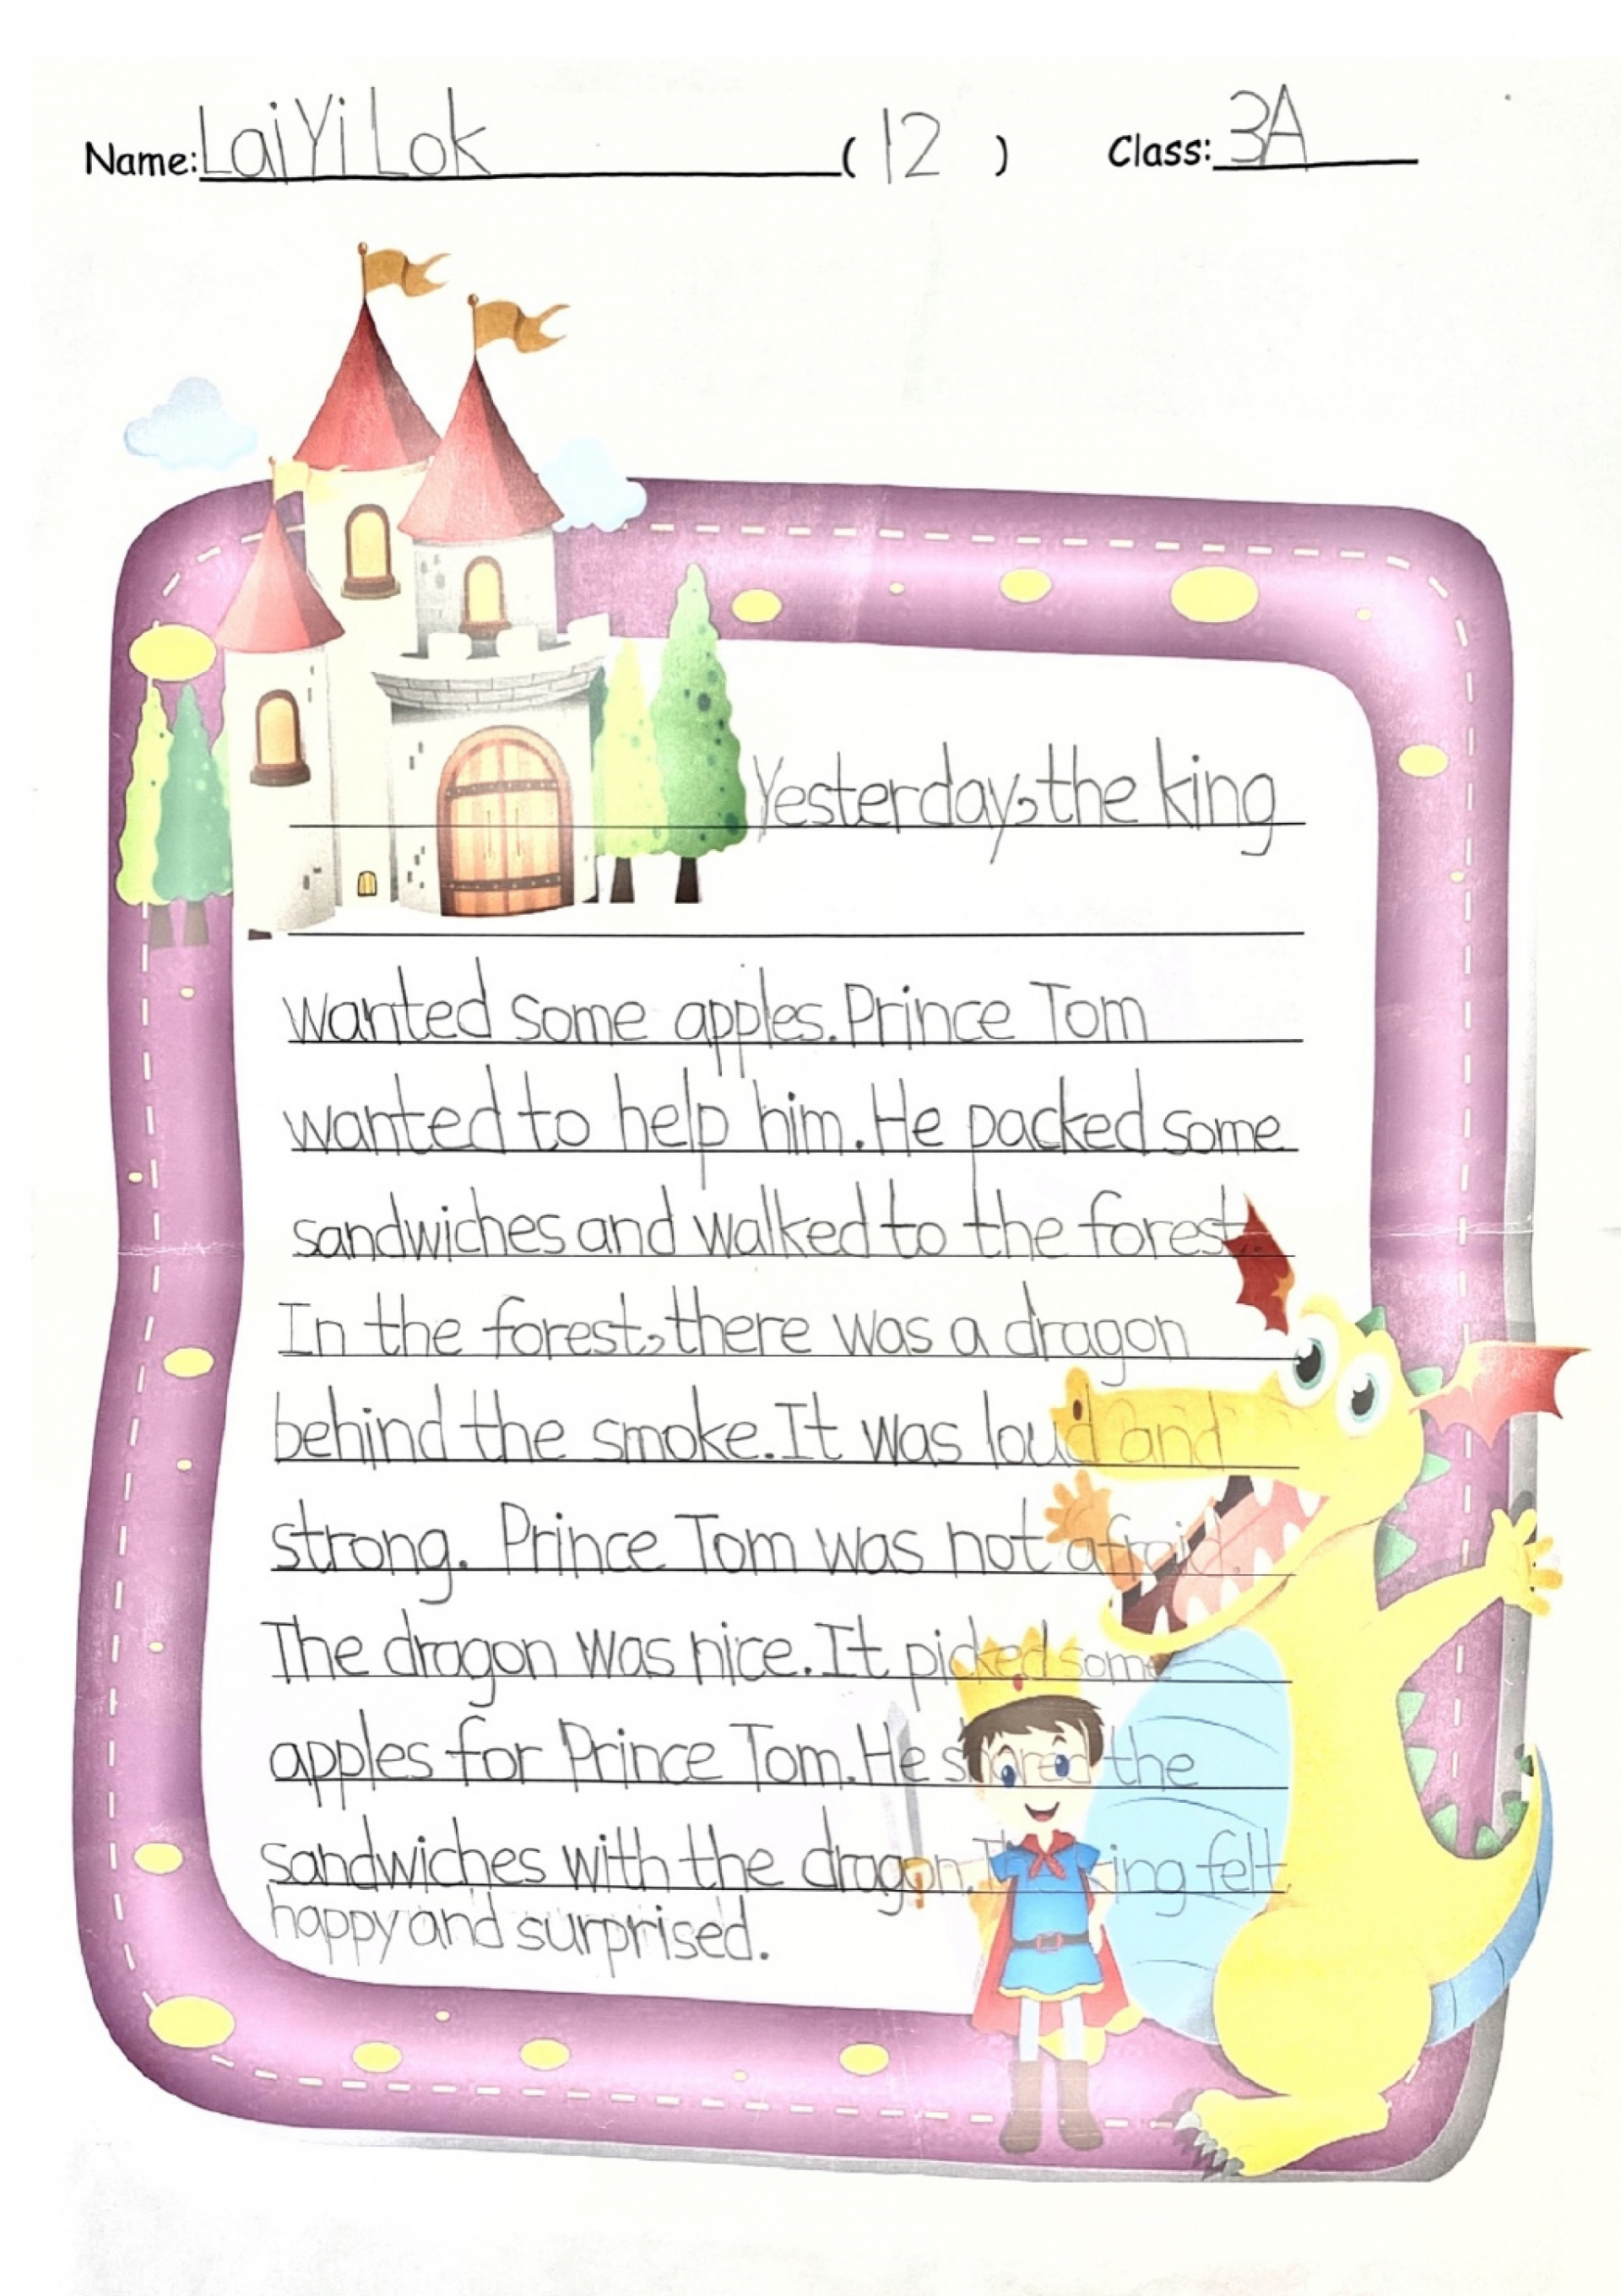 Name: Lai Yi Lok (12) Class: 3A
Yesterday, the king
wanted some apples. Prince Tom
wanted to help him. He packed some
sandwiches and walked to the forest.
In the forest, there was a dragon
behind the smoke. It was loud and
strong. Prince Tom was not afraid.
The dragon was nice. It picked some
apples for Prince Tom. He shared the
sandwiches with the dragon. The king felt
happy and surprised.